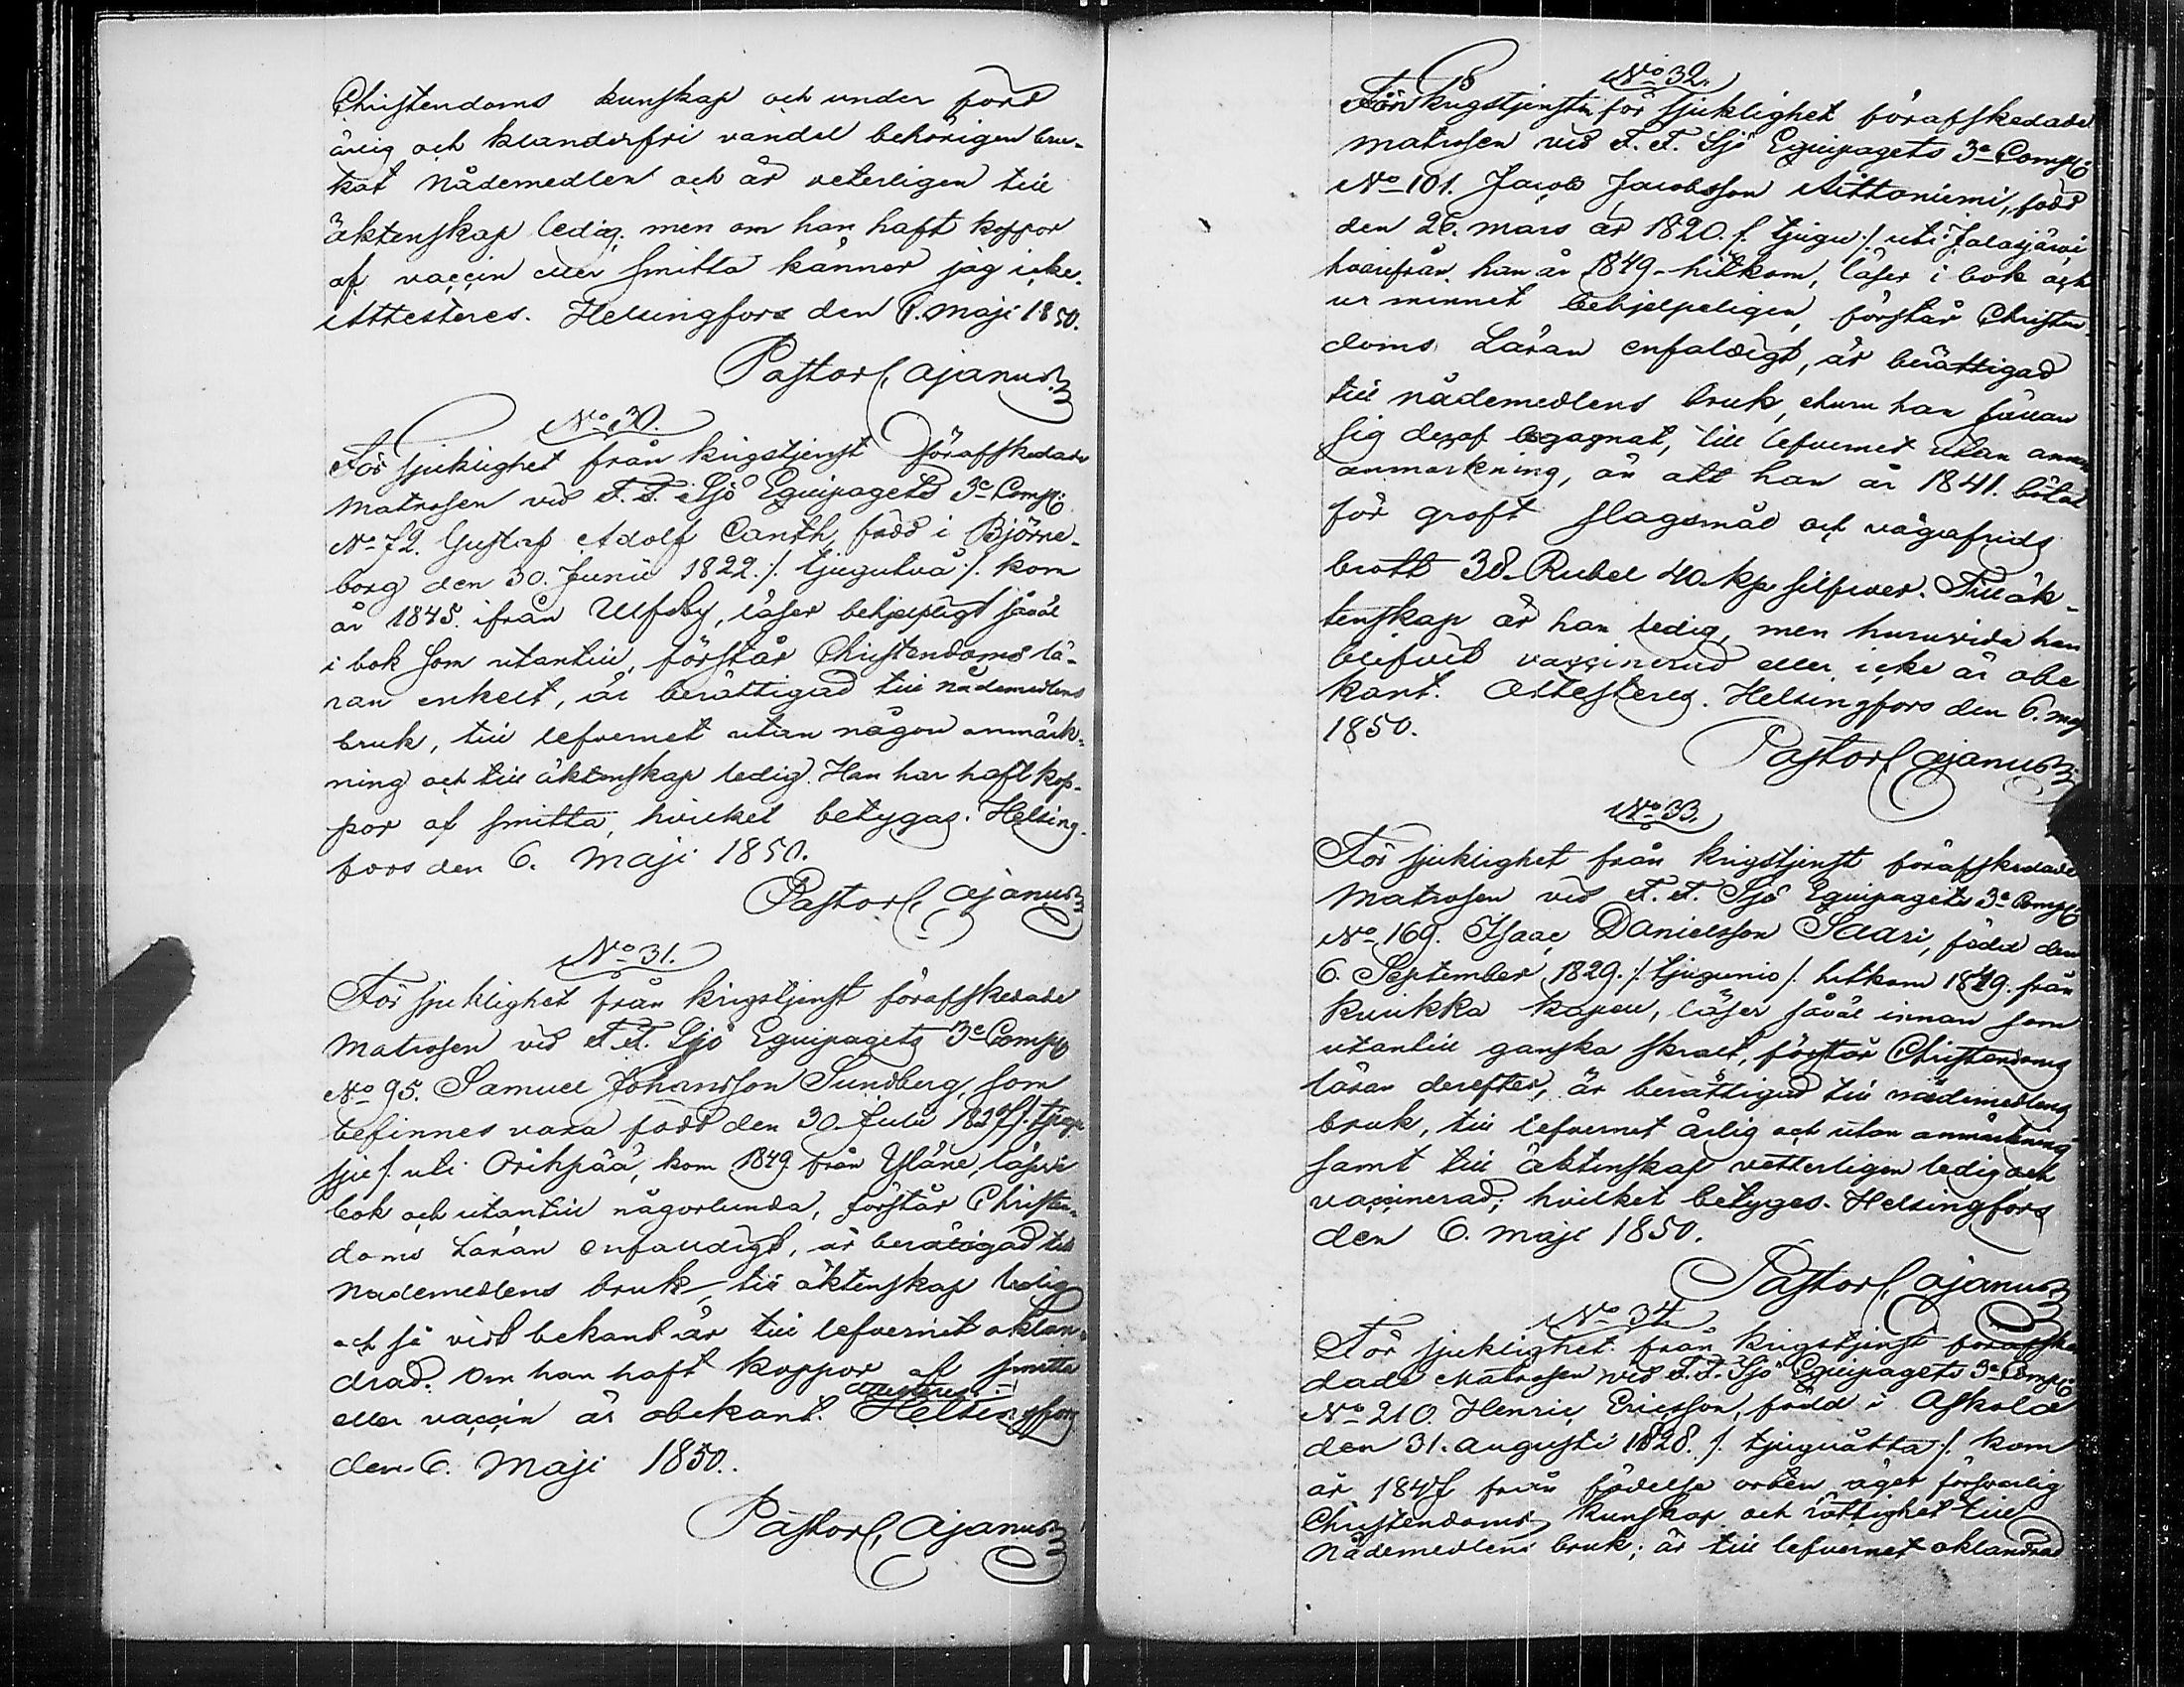 Christendoms kunskap och under förd
ärlig och klanderfri vandel behörigen bru-
kat Nådemedlen och är veterligen till
äktenskap ledig, men om han haft koppor
af vaccin eller smitta känner jag icke.
Attesteres. Helsingfors den 6. Maji 1850.
Pastor Cajanus
No 30.
För sjuklighet från krigstjenst förafskedade
Matrosen vid F. F. Sjö Equipagets 3e Comp:
No 72. Gustaf Adolf Canth, född i Björne-
borg den 30. Junii 1822 /. tjugutvå /. kom
år 1845. ifrån Ulfsby, läser behjelpligt såväl
i bok som utantill, förstår Christendoms lä-
ran enkelt, är berättigad till nådemedlens
bruk, till lefvernet utan någon anmärk-
ning och till äktenskap ledig. Han har haft kop-
por af smitta, hvilket betygas. Helsing-
fors den 6. Maji 1850.
Pastor Cajanus
No 31.
För sjuklighet från krigstjenst förafskedade
Matrosen vid F. F. Sjö Equipagets 3e Comp:
No 95. Samuel Johansson Sundberg, som
befinnes vara född den 30. Julii 1827 /. tjugu
sju /. uti Orihpää, kom 1849 från Yläne, läser i
bok och utantill någorlunda, förstår Christen-
doms Läran enfaldigt, är berätigad till
Nademedlens bruk, till äktenskap ledig
och så vidt bekant är till lefvernet oklan-
drad. Om han haft koppor af smitta
attesteres.
eller vaccin är obekant. Helsingfors
den 6. Maji 1850.
Pastor Cajanus
No 32.
Från krigstjensten för sjuklighet förafskedade
matrosen vid F. F. Sjö Equipagets 3e Comp:
No 101. Jacob Jacobsson Aittoniemi, född
den 26. mars år 1820. /. tjugu /. uti Jalasjärvi
hvarifrån han år 1849 hitkom, läser i bok och
ur minnet behjelpeligen, förstår Christen-
doms Läran enfaldigt, är berättigad
till nådemedlens bruk, ehuru han sällan
sig deraf begagnat, till lefvernet utan annan
anmärkning, än att han år 1841. bötat
för groft slagsmål och vägafrids
brott 38. Rubel 40. kp. silfwer. Till äk-
tenskap är han ledig, men huruvida han
blifvit vaccinerad eller icke är obe
kant. Attesteres. Helsingfors den 6. maj
1850.
Pastor Cajanus
No 33.
För sjuklighet från krigstjenst förafskedade
Matrosen vid F. F. Sjö Equipagets 3e Comp:
No 169. Isaac Danielsson Saari, född den
6. September 1829. /. tjugunio /. hitkom 1849. från
kuikka kapell, läser såväl innan som
utantill ganska skralt, förstår Christendoms
läran derefter, är berättigad till nådemedlens
bruk, till lefvernet ärlig och utan anmärkning
samt till äktenskap vetterligen ledig och
vaccinerad; hvilket betyges. Helsingfors
den 6. Maji 1850.
Pastor Cajanus
No 34.
För sjuklighet från krigstjenst förafske
dade Matrosen vid F. F. Sjö Equipagets 3e Comp:
No 210. Henric Ericsson, född i Askola
den 31. Augusti 1828. /. tjuguåtta /. kom
år 1847 från födelse orten, äger försvarlig
Christendoms kunskap och rättighet till
Nådemedlens bruk; är till lefvernet oklandrad